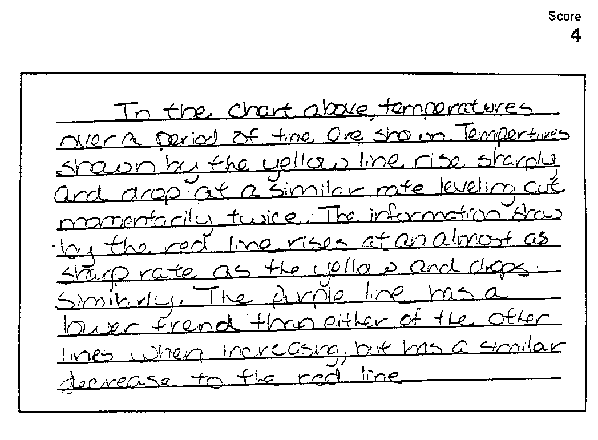 Score
4
In the chart above, temperatures
over a period of time are shown. Tempertures
shown by the yellow line rise sharply
and drop at a similar rate leveling out
momentarily twice. The information show
by the red line rises at an almost as
sharp rate as the yellow and drops
similarly. The purple line has a
lower trend than either of the other
lines when increasing, but has a similar
decrease to the red line